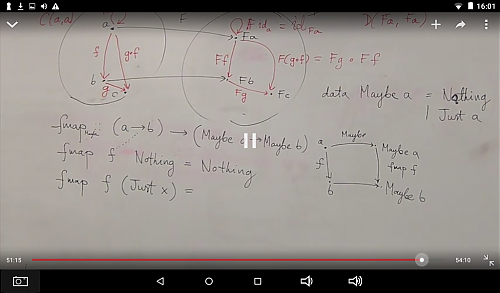 16:01
C(a,a)
F
F id_a = id_Fa
D(Fa, Fa)
a
Fa
f
g∘f
Ff
F(g∘f) = Fg ∘ Ff
b
g
c
Fb
Fg
Fc
data Maybe a = Nothing
| Just a
fmap :: (a→b) → (Maybe a → Maybe b)
fmap f Nothing = Nothing
fmap f (Just x) =
a
Maybe
Maybe a
f
fmap f
b
Maybe b
51:15
54:10